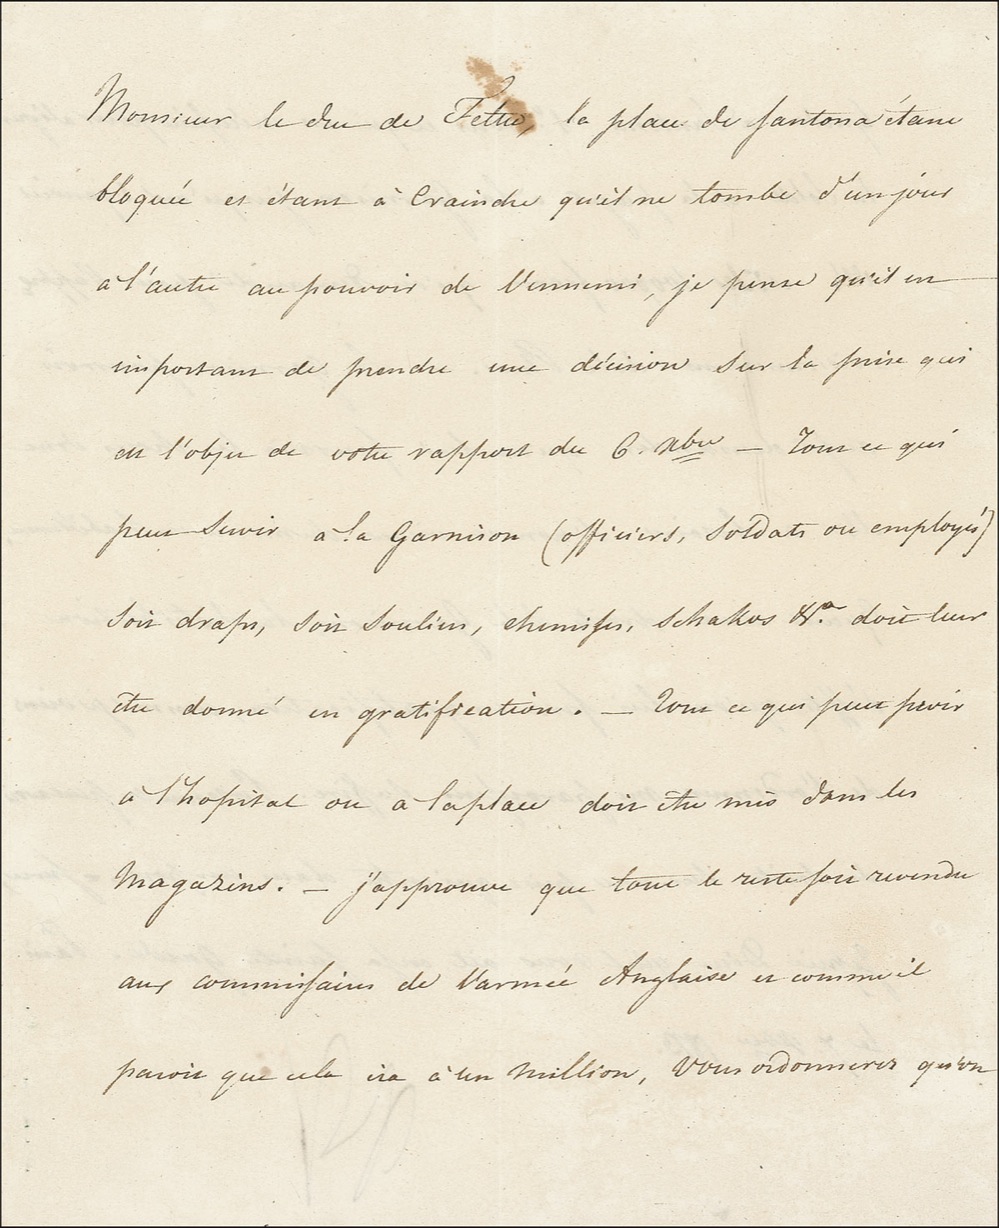 Monsieur le duc de Feltre, la place de Santona étant
bloquée et étant à Craindre qu'il ne tombe d'un jour
à l'autre au pouvoir de l'ennemi, je pense qu'il est
important de prendre une décision sur la prise qui
est l'objet de votre rapport du 6. Xbre — Tout ce qui
peut servir à la Garnison (officiers, soldats ou employés)
soit draps, soit souliers, chemises, schakos &a. doit leur
être donné en gratification. — Tout ce qui peut servir
à l'hopital ou a la place doit être mis dans les
Magazins. — j'approuve que tout le reste soit revendu
aux commissaires de l'armée Anglaise et comme il
paroit que cela ira à un Million, Vous ordonnerez qu'on